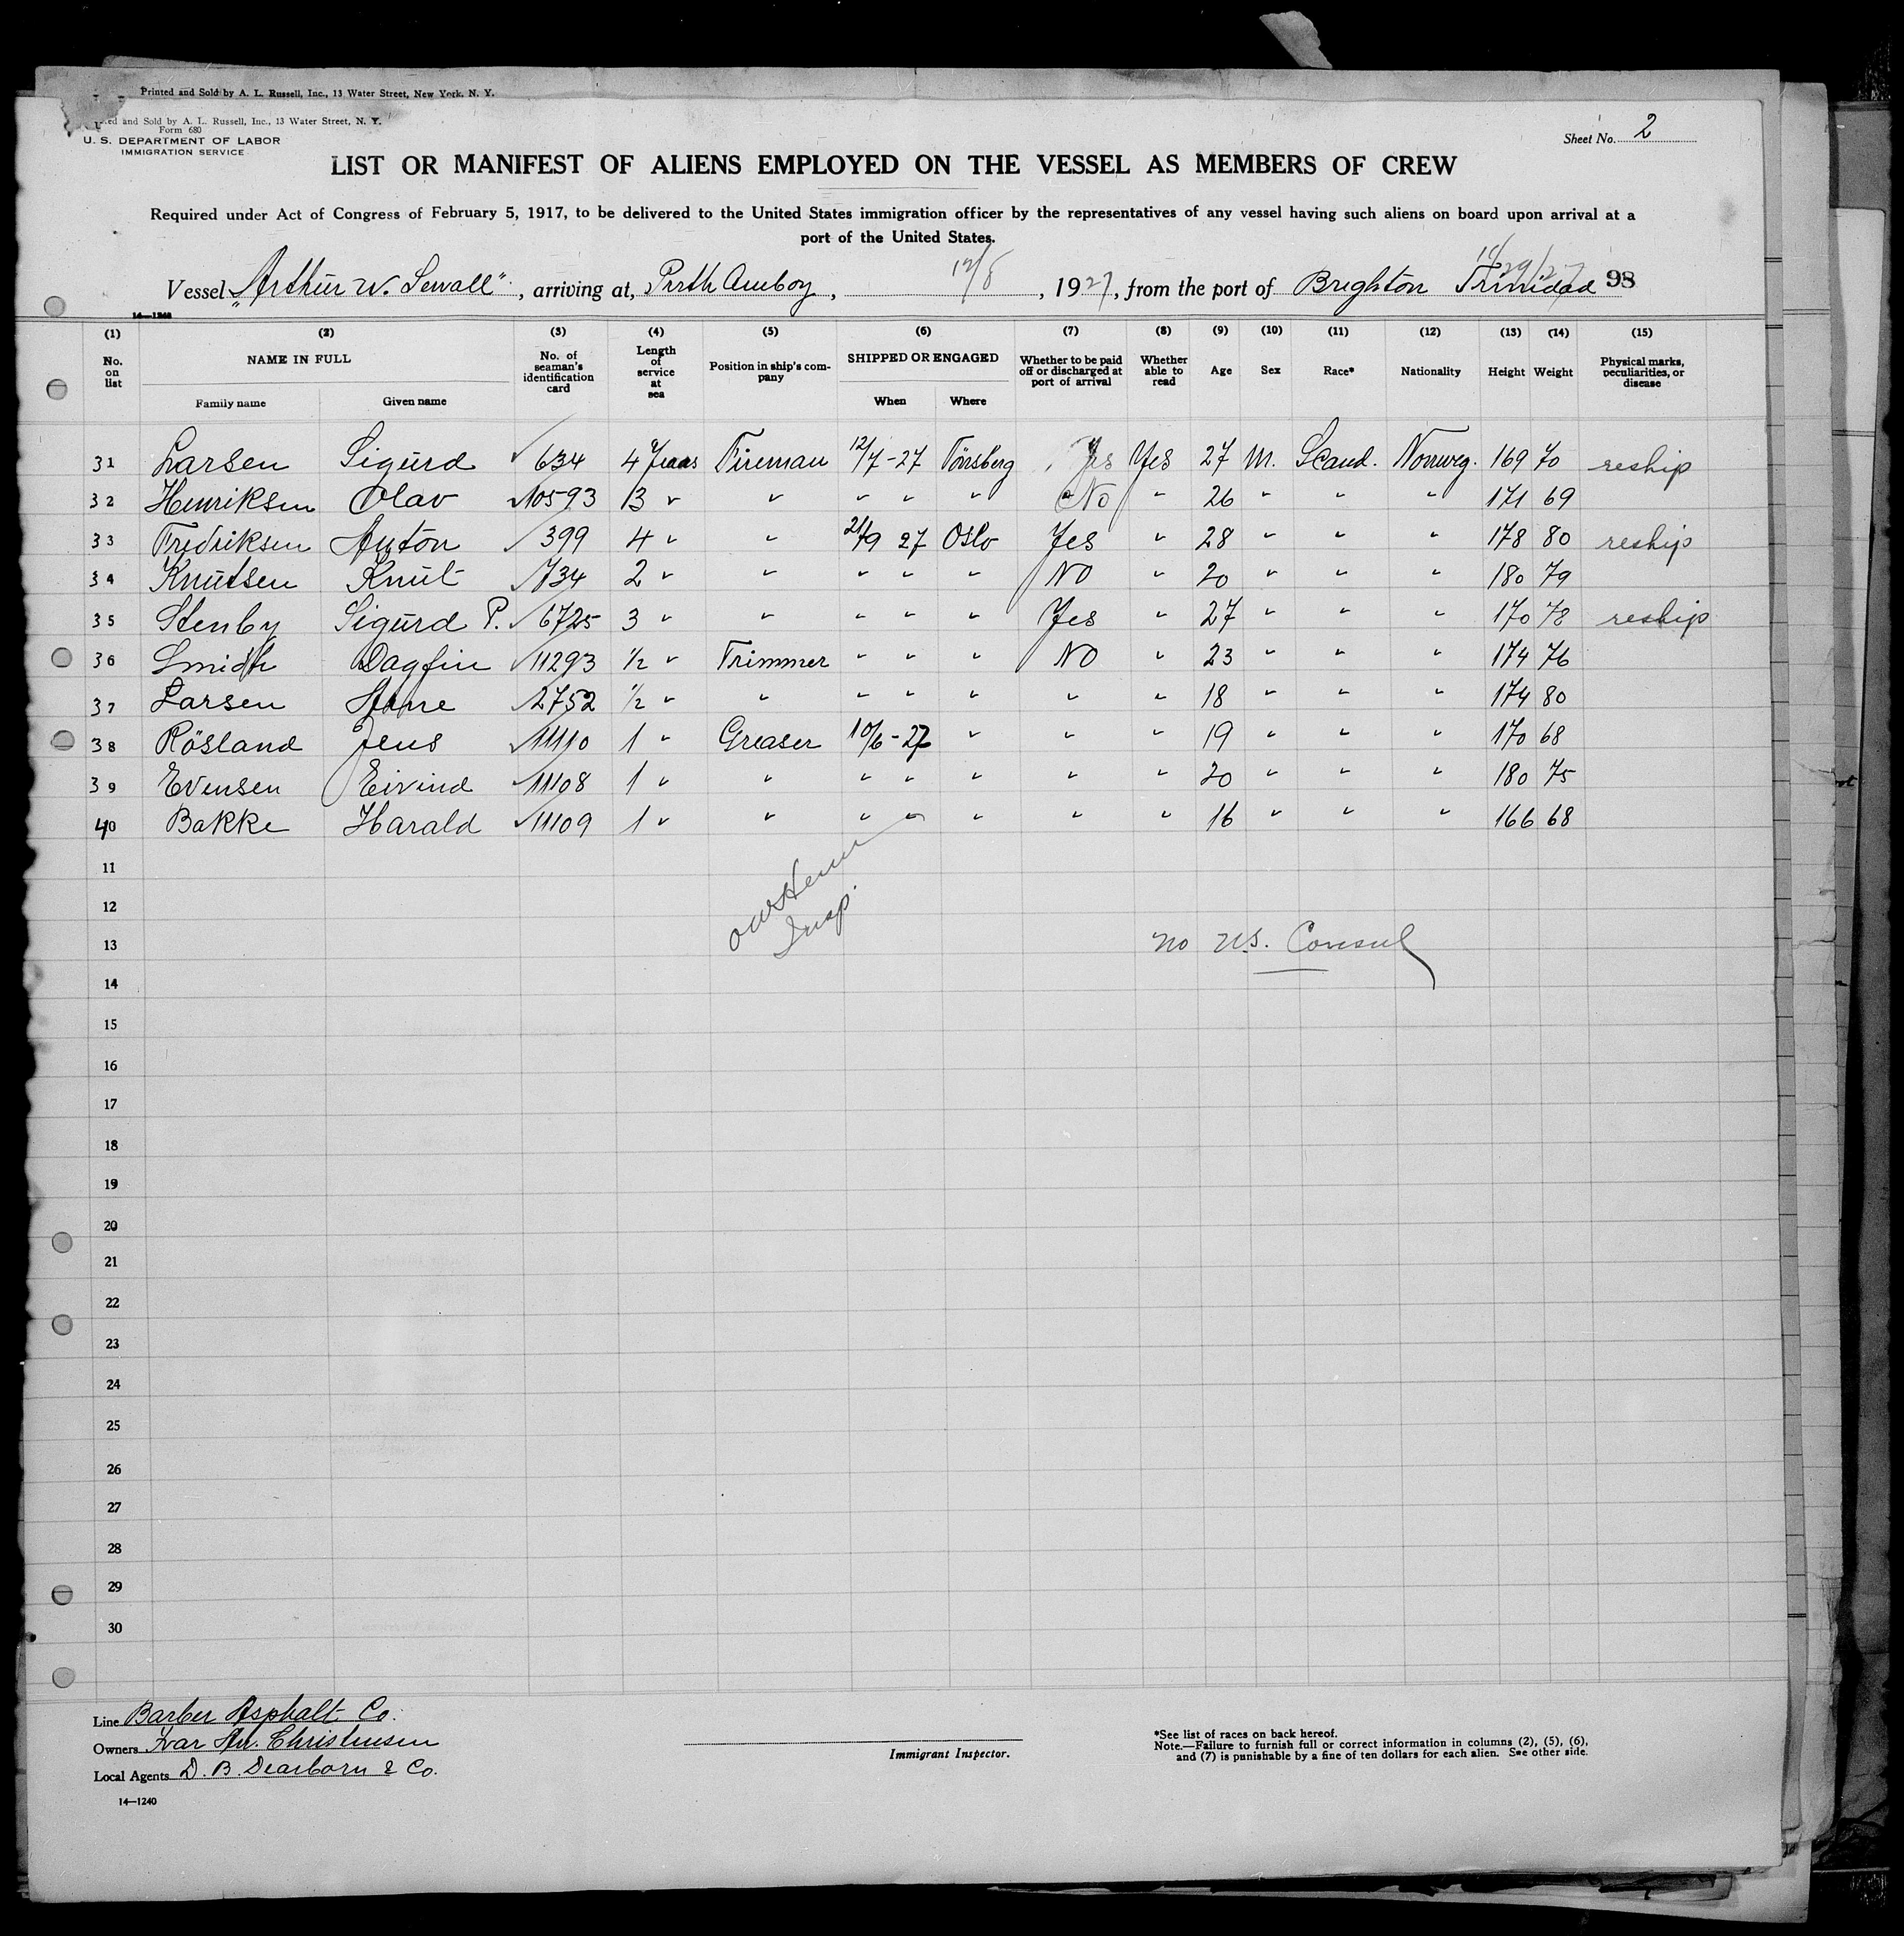 Printed and Sold by A. L. Russell, Inc., 13 Water Street, New York, N. Y.
and Sold by A. L. Russell, Inc., 13 Water Street, N. Y.
Form 680
U. S. DEPARTMENT OF LABOR
IMMIGRATION SERVICE
Sheet No. 2
LIST OR MANIFEST OF ALIENS EMPLOYED ON THE VESSEL AS MEMBERS OF CREW
Required under Act of Congress of February 5, 1917, to be delivered to the United States immigration officer by the representatives of any vessel having such aliens on board upon arrival at a
port of the United States.
Vessel "Arthur W. Sewall", arriving at, Perth Amboy, 12/8, 1927, from the port of Brighton Trinidad 98
14—1240
(1) (2) (3) (4) (5) (6) (7) (8) (9) (10) (11) (12) (13) (14) (15)
No. on list NAME IN FULL Family name Given name No. of seaman's identification card Length of service at sea Position in ship's company SHIPPED OR ENGAGED When Where Whether to be paid off or discharged at port of arrival Whether able to read Age Sex Race* Nationality Height Weight Physical marks, peculiarities, or disease
31 Larsen Sigurd ✓ 634 4 Years Fireman 12/7-27 Tönsberg Yes Yes 27 M. Scand. Norweg. 169 70 reship
32 Henriksen Olav ✓ 10593 13 " " " " " No " 26 " " " 171 69
33 Fredriksen Anton ✓ 399 4 " " 21/9 27 Oslo Yes " 28 " " " 178 80 reship
34 Knutsen Knut ✓ 734 2 " " " " " No " 20 " " " 180 79
35 Stenby Sigurd P. ✓ 6725 3 " " " " " Yes " 27 " " " 170 78 reship
36 Smidth Dagfin ✓ 11293 1/2 " Trimmer " " " No " 23 " " " 174 76
37 Larsen Arne ✓ 2752 1/2 " " " " " " " 18 " " " 174 80
38 Rösland Jens ✓ 11110 1 " Greaser 10/6-27 " " " 19 " " " 170 68
39 Evensen Eivind ✓ 11108 1 " " " " " " " 20 " " " 180 75
40 Bakke Harald ✓ 11109 1 " " " " " " " 16 " " " 166 68
11
12
Insp.
13 no US. Consul
14
15
16
17
18
19
20
21
22
23
24
25
26
27
28
29
30
Line Barber Asphalt Co.
Owners Ivar An. Christensen
Local Agents D. B. Dearborn & Co.
14—1240
Immigrant Inspector.
*See list of races on back hereof.
Note.—Failure to furnish full or correct information in columns (2), (5), (6),
and (7) is punishable by a fine of ten dollars for each alien. See other side.